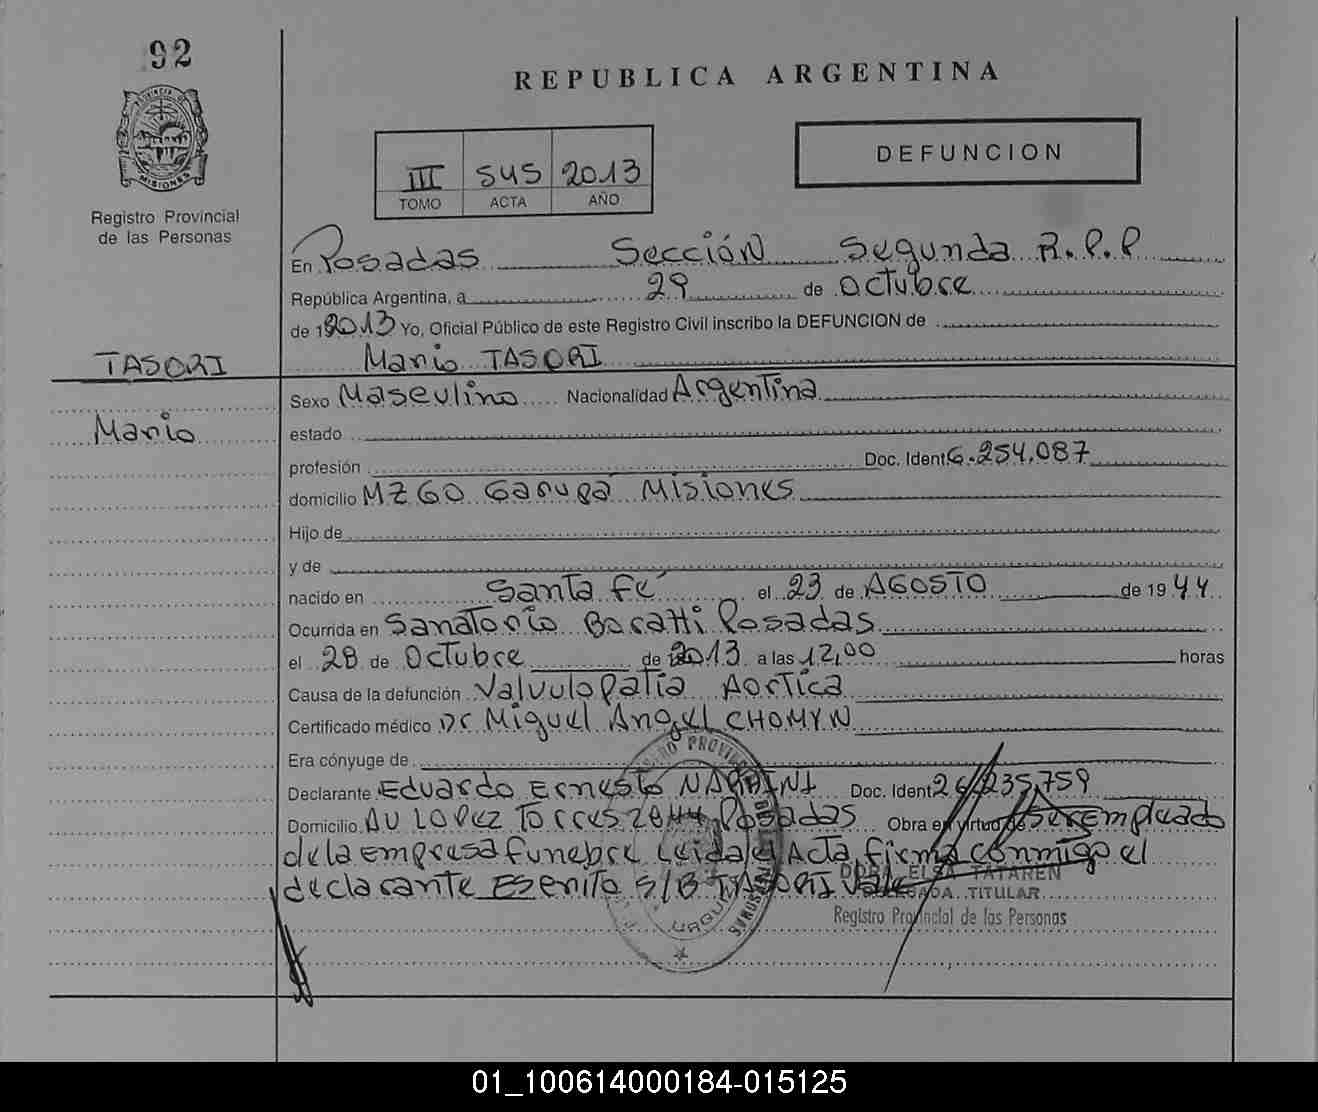 92
REPUBLICA ARGENTINA
PROVINCIA DE
MISIONES
Registro Provincial
de las Personas
III 545 2013
TOMO ACTA AÑO
DEFUNCION
En Posadas Sección Segunda R.P.P
República Argentina, a 29 de Octubre
de 12013 Yo, Oficial Público de este Registro Civil inscribo la DEFUNCION de
TASORI
Mario TASORI
Sexo Masculino Nacionalidad Argentina
Mario
estado
profesión Doc. Ident 6.254.087
domicilio MZ60 Garupá Misiones
Hijo de
y de
nacido en Santa Fé el 23 de AGOSTO de 1944
Ocurrida en Sanatorio Boratti Posadas
el 28 de Octubre de 2013 a las 12,00 horas
Causa de la defunción Valvulopatia Aortica
Certificado médico Dr Miguel Angel CHOMYN
Era cónyuge de
Declarante Eduardo Ernesto Doc. Ident 26.235.759
Domicilio AV LOPEZ TORRES 2044 Posadas Obra en virtud de Ser empleado
de la empresa funebre Leida el Acta firma conmigo el
declarante Escrito S/B TASORI Vale
DORA ELSA TATAREN
DELEGADA TITULAR
Registro Provincial de las Personas
01_100614000184-015125